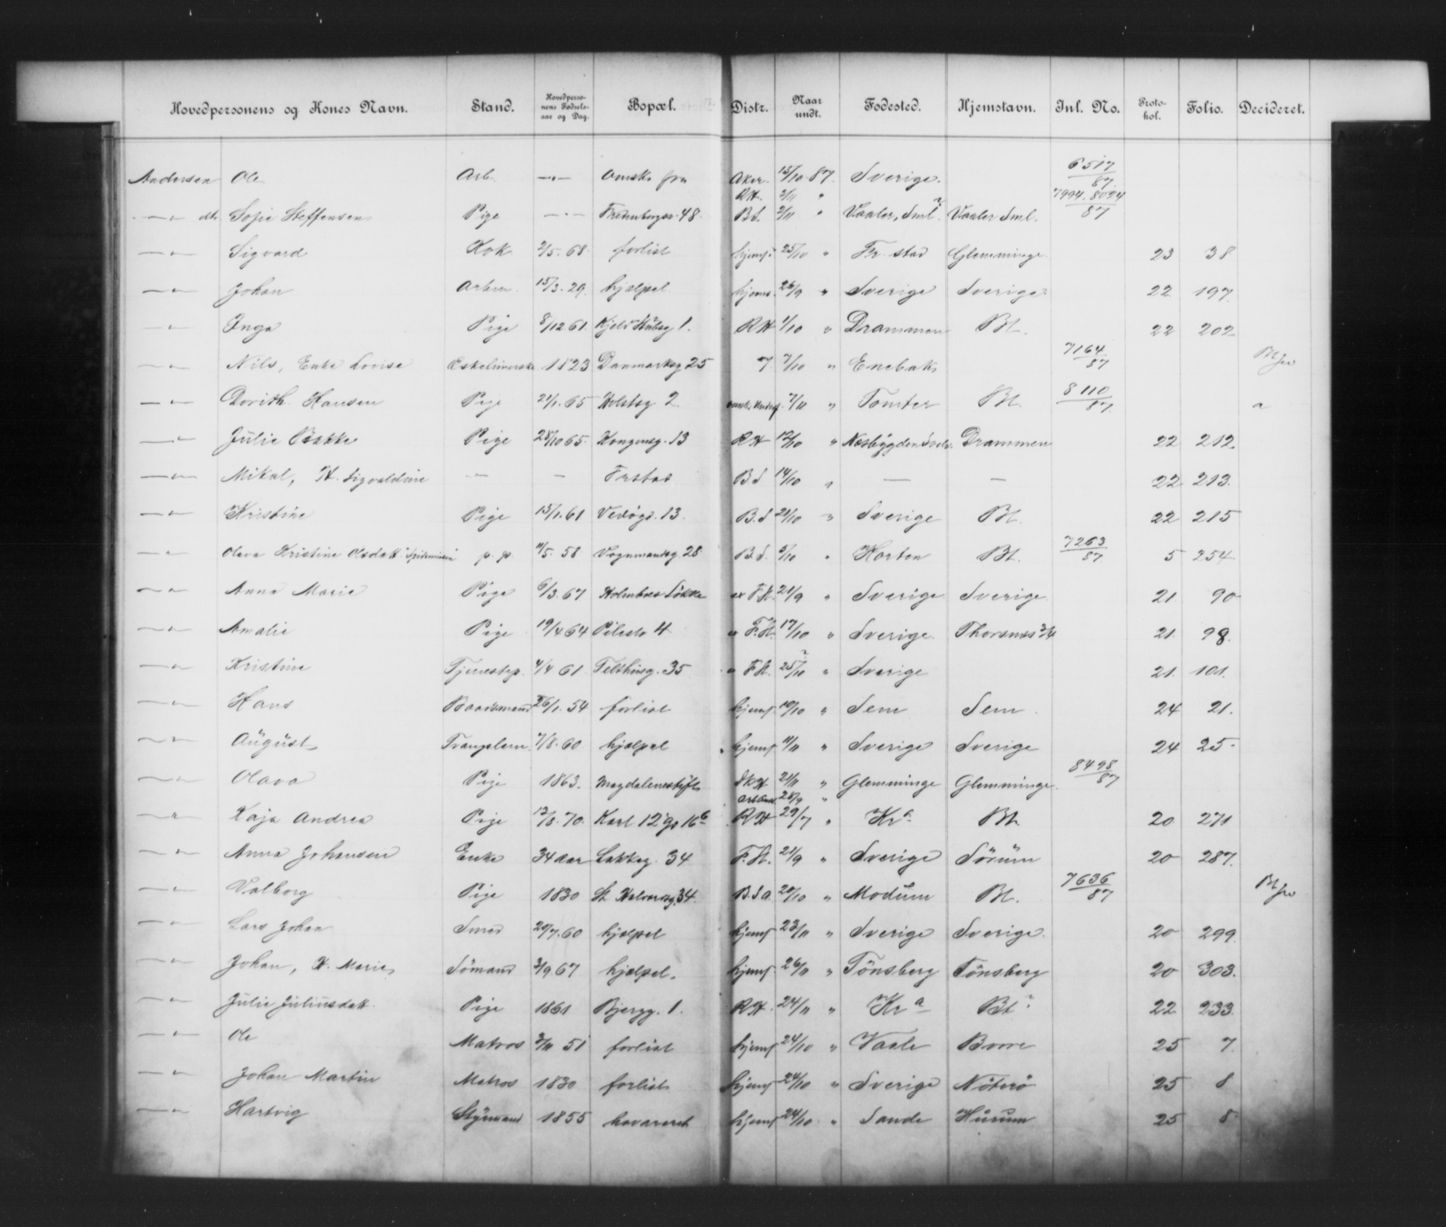 Hovedpersonens og Kones Navn. Stand. Hovedpersonens Fødselsaar og Dag. Bopæl. Distr. Naar undt. Fødested. Hjemstavn. Inl. No. Protokol. Folio. Decideret.
Andersen Ole Arb. —"— Aker 15/10 87. Sverige. 6517/87
—"— Sofie Steffensen Pige —"— 48. R.H. B.S. Vaaler, Sml. Vaaler Sml. 7994. 8094/87
—"— Sigvard Kok 2/5. 68. forlist hjemf. 25/10 " Fr. stad Glemminge 23 38
—"— Johan 15/3. 29. hjælpel 26/9 " Sverige Sverige 22 197
—"— Inga Pige 8/12 61 R.H. 1/10 " Drammen Bt. 22 202
—"— Nils, Enke Lovise 1823 Danmarksg 25 7 7/10 " Enebak 7164/87
—"— Dorith. Hansen Pige 21/1. 65 Holstsg. 2 7/11 " Tomter Bt. 8110/87 "
—"— Julie Bakke Pige 28/10 65 Kongensg. 13 R.H. 12/10 " Drammen 22 212
—"— Mikal, H. Sigvaldine — — Frstad B.S 14/10 " — — 22 213
—"— Kristine Pige 15/1. 61 13 B.S 21/10 " Sverige Bt. 22 215
—"— Olava Kristine Olsdatt p. p. 11/5. 58 Vognmandsg 28 B.S. 5/10 " Horten Bt. 7263/87 5 254
—"— Anna Marie Pige 6/3. 67 Holmboes Løkke F.A. 21/9 " Sverige Sverige 21 90
—"— Amalie Pige 19/4 64 Pilestr 4 " F.A. 17/10 " Sverige 21 98.
—"— Kristine Tjenestep. 4/4 61 35 " F.A. 25/10 " Sverige 21 101.
—"— Hans Baadsmand 26/1. 54 forlist hjemf 10/10 " Sem Sem 24 21.
—"— August 7/8. 60 hjælpel hjemf 11/11 " Sverige Sverige 24 25
—"— Olava Pige 1863. Magdalenestift. 21/11 " Glemminge Glemminge 8498/87
—"— Kaja Andrea Pige 12/8. 70. Karl 12 gs 16 b R.H 29/7 " Kra Bt. 20 271
—"— Anna Johansen Enke 34 aar Lakkeg. 34 F.A. 21/9 " Sverige Sørum 20 287.
—"— Valborg Pige 1830 St. Halvardsg. 34 B.S.a. 20/10 " Modum Bt. 7636/87
—"— Lars Johan Smed 20/7. 60 hjælpel hjemf 23/11 " Sverige Sverige. 20 299.
—"— Johan, H. Marie Sømand 3/9 67 hjælpel. hjemf 26/11 " Tønsberg Tønsberg 20 303.
—"— Julie Juliusdatt. Pige 1861 Bjergg. 1. R.H. 24/11 " Kra Bt 22 233
—"— Ole Matros 3/11 51 forlist hjemf 24/10 " Vaale Borre 25 7.
—"— Johan Martin Matros 1830 forlist hjemf 24/10 " Sverige Nøterø 25 8
—"— Hartvig Styrmand 1855 havareret hjemf 24/10 " Sande Hurum 25 8